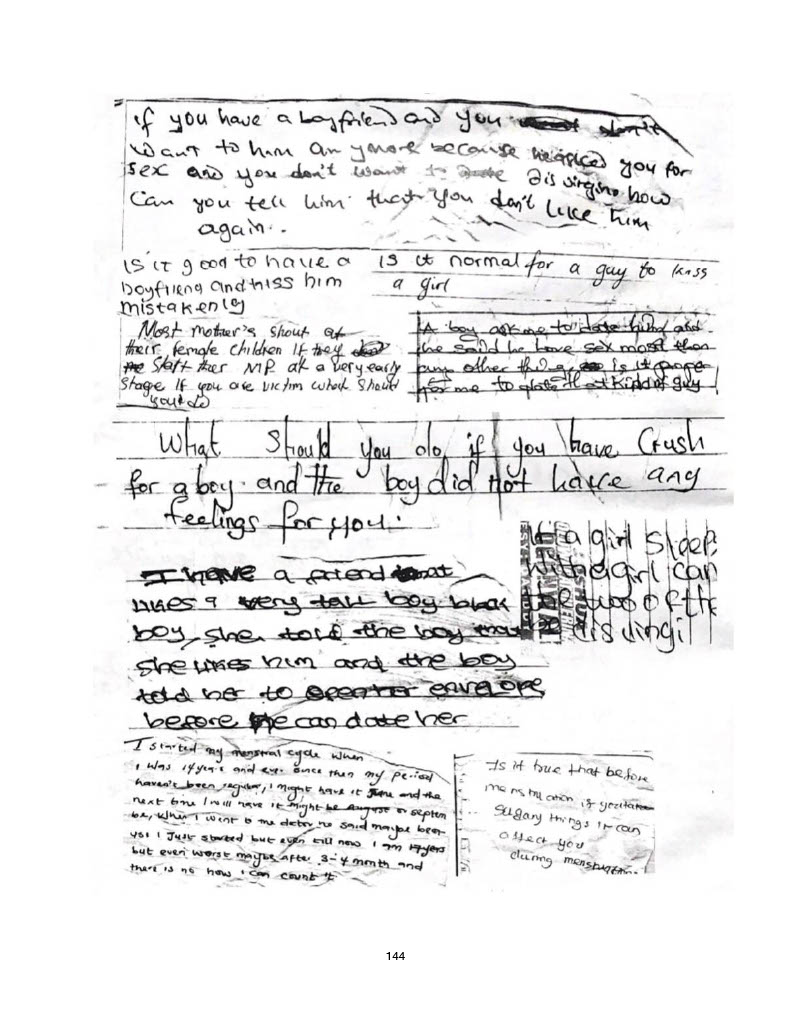 if you have a boyfriend and you don't
want to him any more because he asked you for
sex and you don't want to disvirgine how
Can you tell him that you don't like him
again..
Is it good to have a
boyfriend and kiss him
mistakenly
Is it normal for a guy to kiss
a girl
Most mother's shout at
their female children If they
Start ther MP at a very early
stage If you are victim what should
you do
A boy ask me to date him and
he said he love sex most than
any other thing, is it proper
for me to date that kind of guy
What should you do if you have Crush
for a boy and the boy did not have any
feelings for you.
I have a friend that
likes a very tall boy black
boy, she told the boy that
she likes him and the boy
told her to open her envelope
before he can date her
If a girl sleep
with a girl can
the two of the
be disvingi
I started my menstral cycle when
I was 14 years and ever since then my period
haven't been regular, I might have it June and the
next time I will have it might be August or septem
be, When I went to the doctor he said maybe beca
use I just started but even till now I am 17yers
but even worst maybe after 3-4 month and
there is no how I can count it
Is it true that before
menstruation if you take
sugary things it can
affect you
during menstruation
144